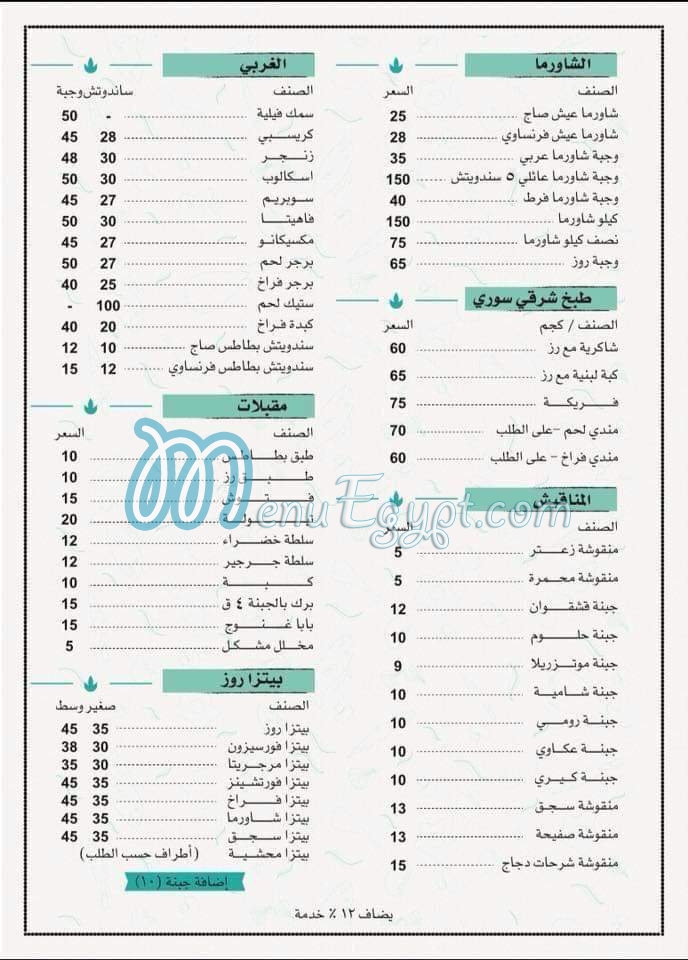 الشاورما
الصنف السعر
شاورما عيش صاج 25
شاورما عيش فرنساوي 28
وجبة شاورما عربي 35
وجبة شاورما عائلي ٥ سندويتش 150
وجبة شاورما فرط 40
كيلو شاورما 150
نصف كيلو شاورما 75
وجبة روز 65
طبخ شرقي سوري
الصنف / كجم السعر
شاكرية مع رز 60
كبة لبنية مع رز 65
فريكة 75
مندي لحم -على الطلب 70
مندي فراخ - على الطلب 60
المناقيش
الصنف السعر
منقوشة زعتر 5
منقوشة محمرة 5
جبنة قشقوان 12
جبنة حلوم 10
جبنة موتزريلا 9
جبنة شامية 10
جبنة رومي 10
جبنة عكاوي 10
جبنة كيري 10
منقوشة سجق 13
منقوشة صفيحة 13
منقوشة شرحات دجاج 15
الغربي
الصنف ساندوتش وجبة
سمك فيلية - 50
كريسبي 28 45
زنجر 30 48
اسكالوب 30 50
سوبريم 27 45
فاهيتا 30 50
مكسيكانو 27 45
برجر لحم 27 50
برجر فراخ 25 40
ستيك لحم 100 -
كبدة فراخ 20 40
سندويتش بطاطس صاج 10 12
سندويتش بطاطس فرنساوي 12 15
مقبلات
الصنف السعر
طبق بطاطس 10
طبق رز 10
فتوش 15
تبولة 20
سلطة خضراء 12
سلطة جرجير 12
كبة 10
برك بالجبنة ٤ ق 15
بابا غنوج 15
مخلل مشكل 5
بيتزا روز
الصنف صغير وسط
بيتزا روز 35 45
بيتزا فورسيزون 30 38
بيتزا مرجريتا 30 35
بيتزا فورتشينز 35 45
بيتزا فراخ 35 45
بيتزا شاورما 35 45
بيتزا سجق 35 45
بيتزا محشية (أطراف حسب الطلب)
إضافة جبنة (١٠)
يضاف ١٢ ٪ خدمة
MenuEgypt.com